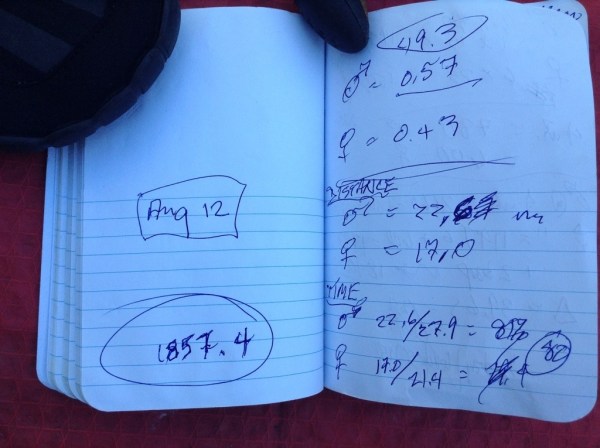 Aug 12
1857.4
49.3
♂ = 0.57
♀ = 0.43
DISTANCE
♂ = 22,
♀ = 17,0
TIME
♂ 22.6/27.9 = 81%
♀ 17.0/21.4 =
80